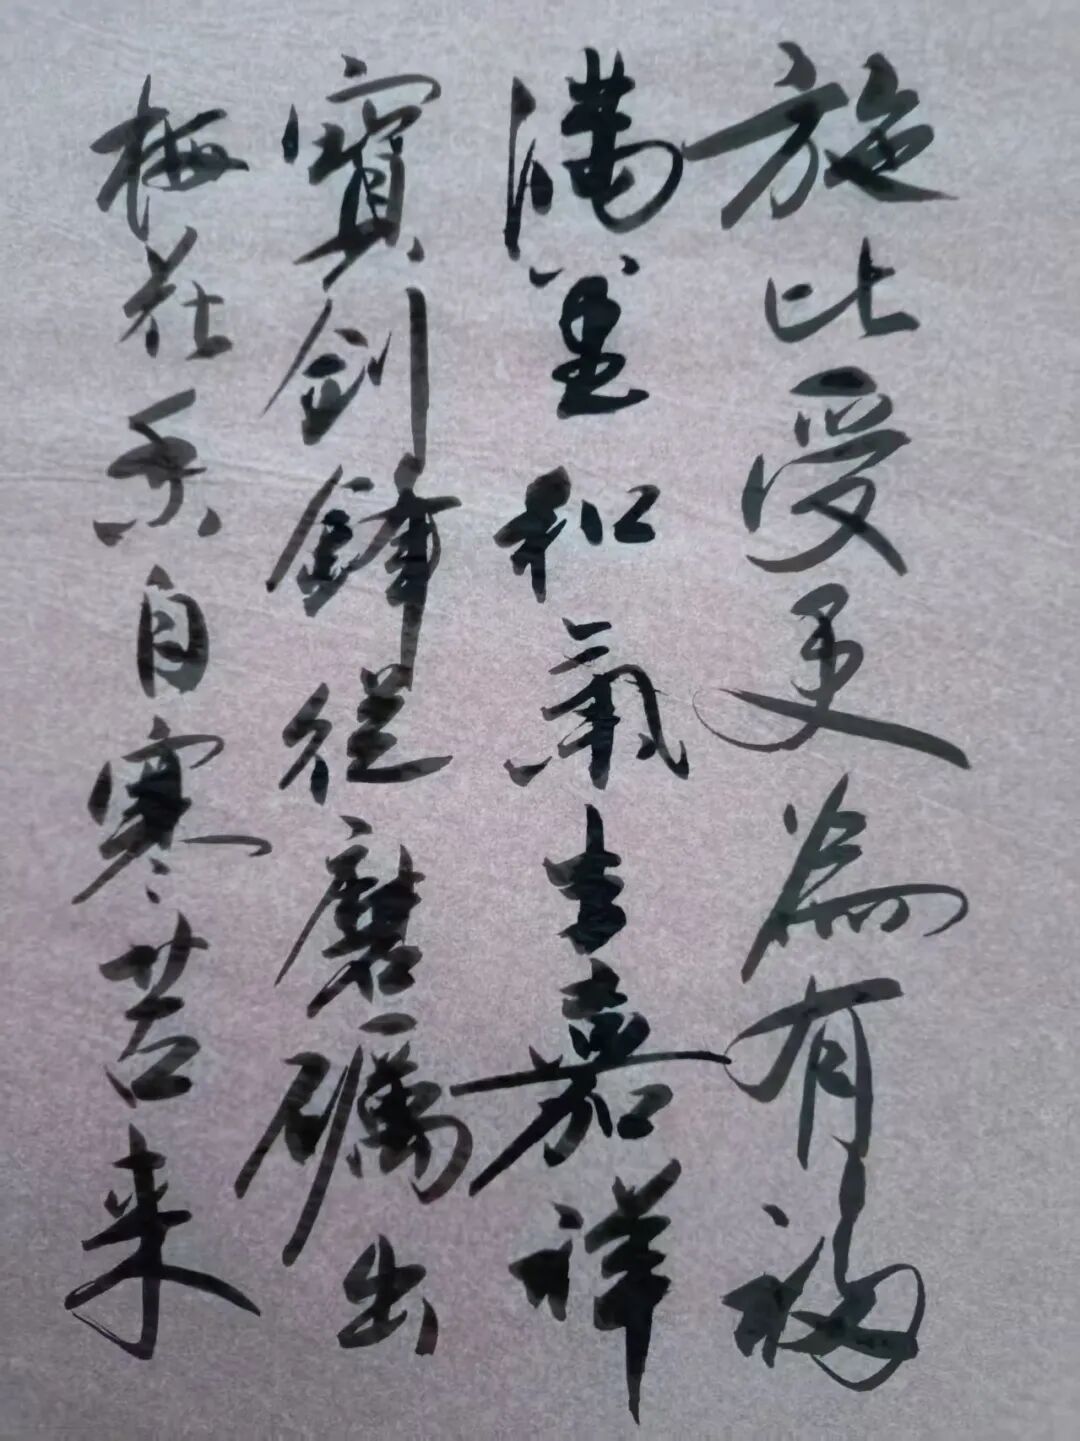 施比受更為有福
滿堂和氣生嘉祥
寶劍鋒從磨礪出
梅花香自寒苦来